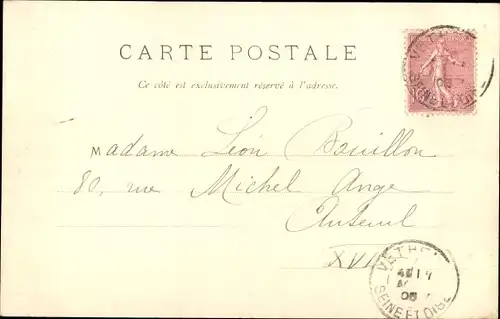 CARTE POSTALE
Ce côté est exclusivement réservé à l'adresse.
Madame Léon Bouillon
80, rue Michel Ange
Auteuil
XVI
SEINE ET OISE
05
VETHE
SEINE ET OISE
05